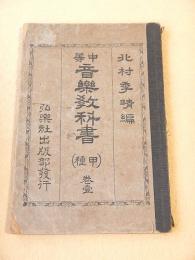 北村季晴編
中等
音樂教科書
(甲種)
卷壹
弘樂社出版部發行